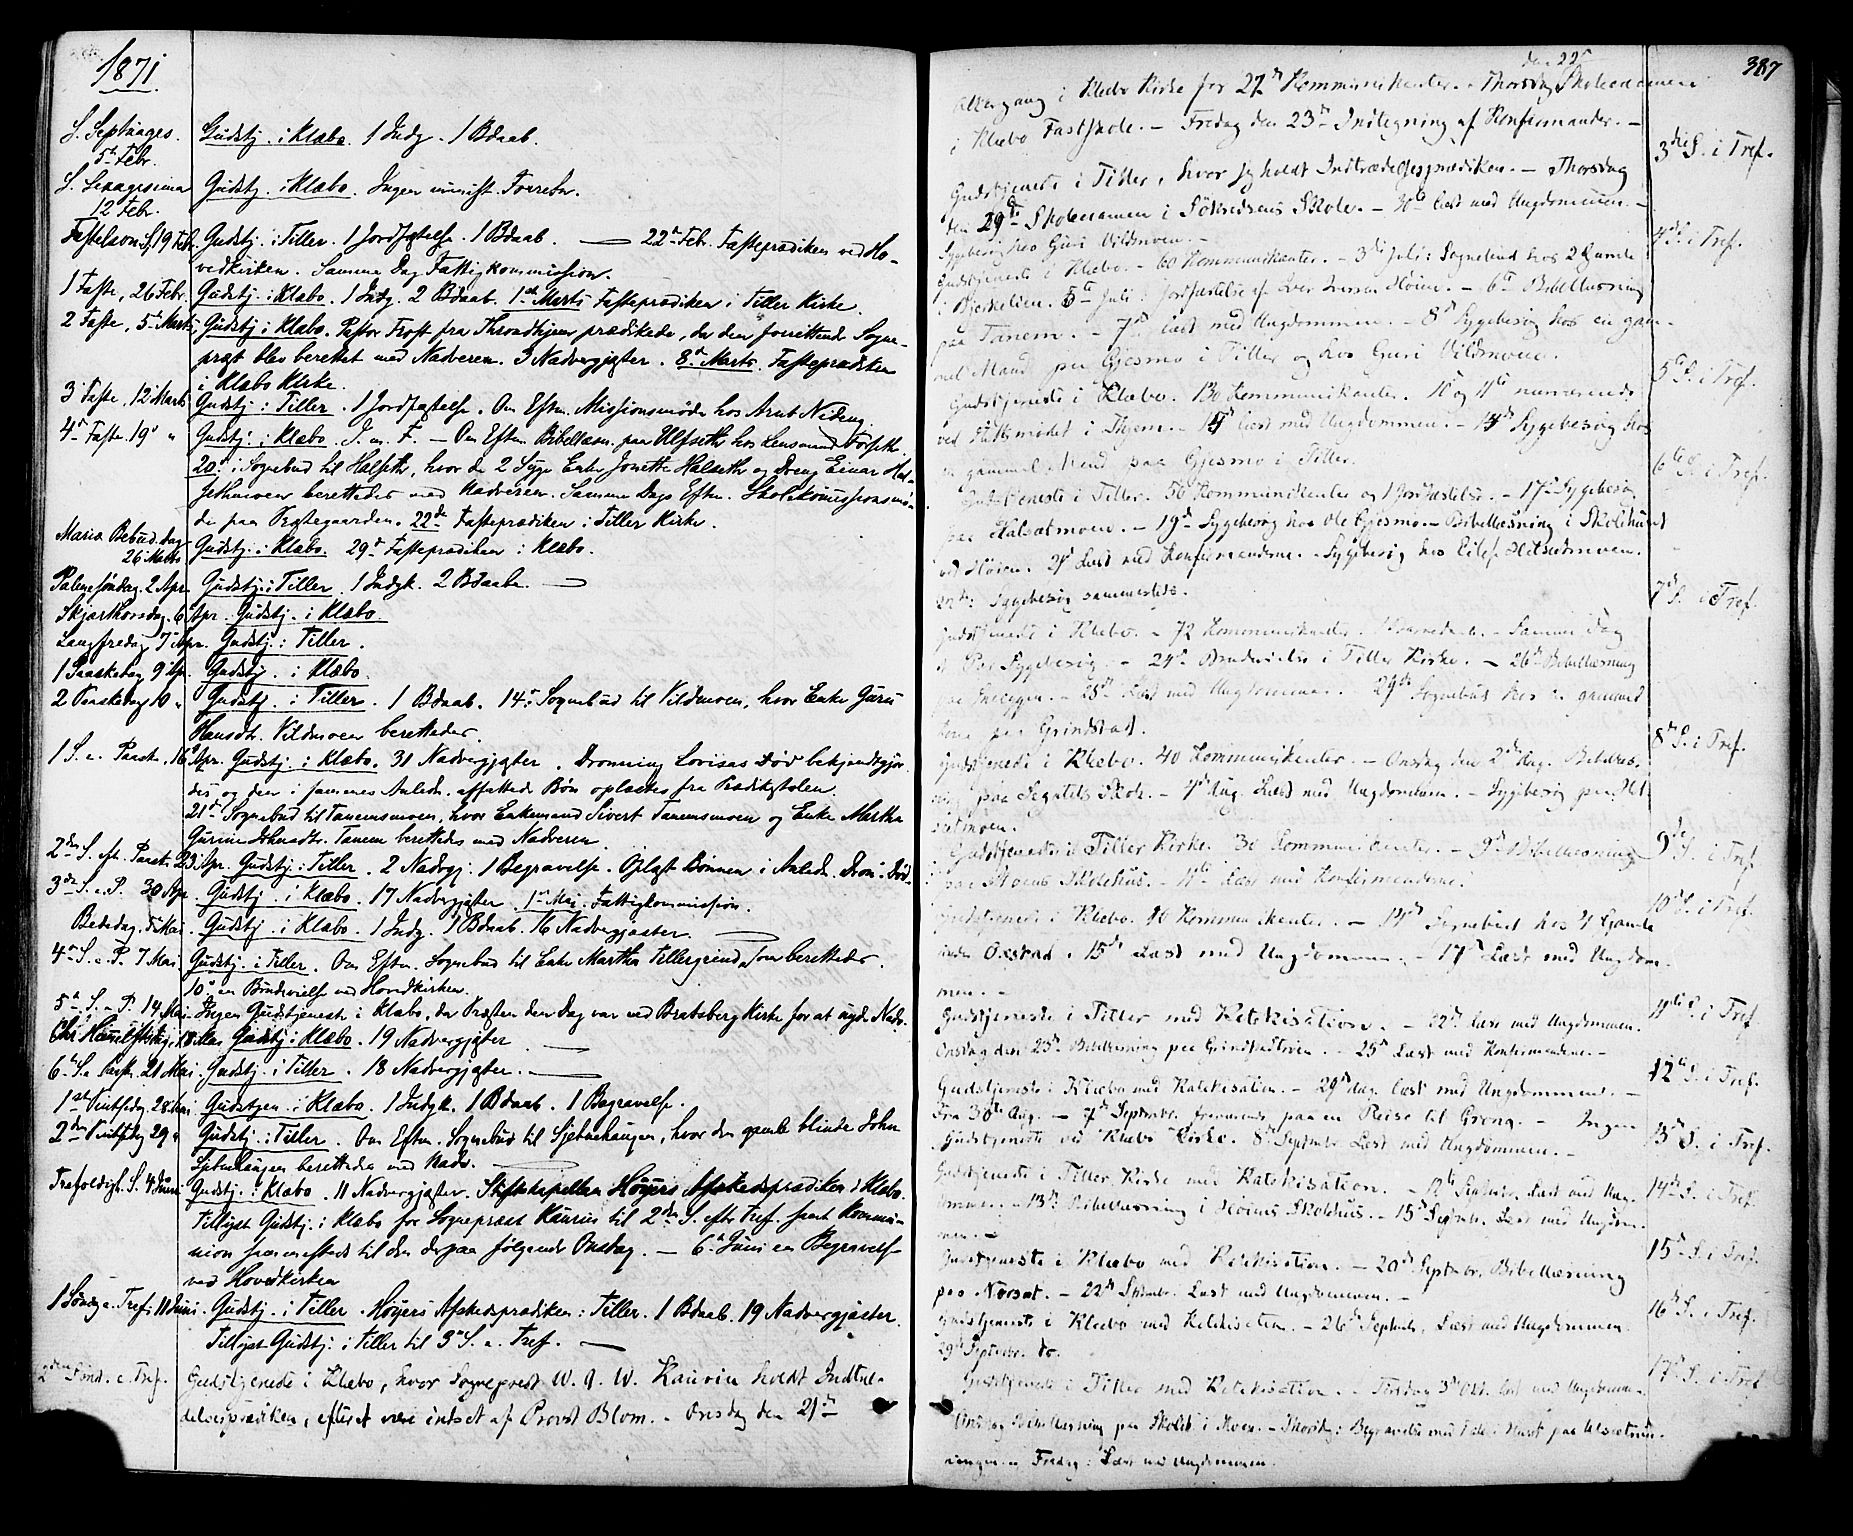 1871
S. Septuages. Gudstj. i Klæbo. 1 Indg. 1 Bdaab.
5te Febr.
S. Sexagesima Gudstj. i Klæbo. Ingen minist. Forretn.
12 Febr.
Fastelavn S. 19 Feb. Gudstj. i Tiller. 1 Jordfæstelse. 1 Bdaab. — 22de Feb. Fasteprædiken ved Ho-
vedkirken. Samme Dag Fattigkommission.
1 Faste, 26 Febr. Gudstj. i Klæbo. 1 Indg. 2 Bdaab. 1ste Marts Fasteprædiken i Tiller Kirke.
2 Faste, 5te Marts Gudstj. i Klæbo. Pastor Frost fra Throndhjem prædikede, da den forrettende Sogne-
præst blev berettet med Nadveren. 3 Nadvergjæster. 8de Marts. Fasteprædiken
i Klæbo Kirke.
3 Faste, 12 Marts Gudstj. i Tiller. 1 Jordfæstelse. Om Eftm. Missionsmøde hos Arnt Nideng.
4de Faste 19de " Gudstj. i Klæbo. I. m. F. — Om Eftm. Bibellæsn. paa Ulfseth hos Lensmand Forseth.
20de i Sognebud til Halseth, hvor de 2 Syge Enke Jonetta Halseth og Dreng Einar Hal-
sethmoen berettedes med Nadveren. Samme Dags Eftm. Skolekommissionsmø-
de paa Præstegaarden. 22de Fasteprædiken i Tiller Kirke.
Maria Bebud. Dag
26 Marts Gudstj. i Klæbo. 29de Fasteprædiken i Klæbo.
Palmesøndag 2 Apr. Gudstj. i Tiller. 1 Indgk. 2 Bdaabe. —
Skjærthorsdag 6 Apr. Gudstj. i Klæbo.
Langfredag 7de Apr. Gudstj. i Tiller.
1 Paaskedag 9 Apr. Gudstj. i Klæbo.
2 Paaskedag 10 " Gudstj. i Tiller. 1 Bdaab. 14de Sognebud til Vildmoen, hvor Enke Guru
Hansdtr. Vildmoen berettedes.
1 S. e. Paaske, 16 Apr. Gudstj. i Klæbo. 31 Nadvergjæster. Dronning Lovisas Død bekjendtgjor-
des og den i sammes Anledn. affattede Bøn oplæstes fra Prædikestolen.
21de Sognebud til Tanemsmoen, hvor Enkemand Sivert Tanemsmoen og Enke Martha
Gurine Tanem berettedes med Nadveren.
2den S. eft. Paaske 23 Apr. Gudstj. i Tiller. 2 Nadvgj. 1 Begravelse. Oplæst Bønnen i Anledn. Dron. Død.
3die S. e. P. 30 Apr. Gudstj. i Klæbo. 17 Nadvergjæster. 1ste Mai. Fattigkommission.
Bededag, 5 Mai. Gudstj. i Klæbo. 1 Indg. 1 Bdaab. 16 Nadvergjæster. —
4de S. e. P. 7 Mai. Gudstj. i Tiller. Om Eftm. Sognebud til Enke Martha Tillergrind, som berettedes.
10de en Brudevielse ved Hovedkirken.
5te S. e. P. 14 Mai. Ingen Gudstjeneste i Klæbo, da Præsten den Dag var ved Bratsberg Kirke for at nyde Nadv.
Chr. Himmelfartsdag, 18 Mai Gudstj. i Klæbo. 19 Nadvergjæster —
6te S. e. Paaske 21 Mai. Gudstj. i Tiller. 18 Nadvergjæster. —
1ste Pintsedag 28 Mai Gudstjen. i Klæbo. 1 Indgk. 1 Bdaab. 1 Begravelse.
2den Pintsedag 29 " Gudstj. i Tiller. Om Eftm. Sognebud til Sjetnehaugen, hvor den gamle blinde John
Sjetnehaugen berettedes med Nadv.
Trefoldigh. S. 4 Juni Gudstj. i Klæbo. 11 Nadvergjæster. Stiftskapellan Høyers Afskedsprædiken i Klæbo.
Tillyst Gudstj. i Klæbo for Sognepræst Kaurin til 2den S. efter Tref. samt Kommu-
nion sammesteds til den derpaa følgende Onsdag. — 6te Juni en Begravelse
ved Hovedkirken
1 Søndg e. Tref. 11 Juni. Gudstj. i Tiller. Høyers Afskedsprædiken i Tiller. 1 Bdaab. 19 Nadvergjæster.
Tillyst Gudstj. i Tiller til 3die S. e. Tref. —
2den Sønd. e. Tref. Gudstjeneste i Klæbo, hvor Sogneprest W. A. W. Kaurin holdt Indtræ-
delsesprædiken, efter at være indsat af Provst Blom. — Onsdag den 21de
387
den 22de
Altergang i Klæbo Kirke for 27 Kommunikanter. — Thorsdag Skoleexamen
i Klæbo Fastskole. — Fredag den 23de Indtegning af Konfirmander. —
3die S. i Tref.
Gudstjeneste i Tiller, hvor jeg holdt Indtrædelsesprædiken. — Thorsdag
den 29de Skoleexamen i Skole. — 30te læst med Ungdommen. —
Sygebesøg hos Guri Vildmoen. —
4de S. i Tref.
Gudstjeneste i Klæbo. — 60 Kommunikanter. — 3die Juli: Sognebud hos 2 Gamle
i Bjerkelien. 5te Juli: Jordfæstelse af Høin. — 6te Bibellæsning
paa Tanem. — 7de læst med Ungdommen. — 8de Sygebesøg hos en gam-
mel Mand paa Gjesmo i Tiller og hos Guri Vildmoen.
5te S. i Tref.
Gudstjeneste i Klæbo. 130 Kommunikanter. 10 og 11te nærværende
ved Stiftsmødet i Thjem. — læst med Ungdommen. — Sygebesøg hos
gammel Mand paa Gjesmo i Tiller.
6te S. i Tref.
Gudstjeneste i Tiller. 56 Kommunikanter og 1 Jordfæstelse. — 17de Sygebesøg
paa Halsetmoen. — 19de Sygebesøg hos Ole Gjesmo. — Bibellæsning i Skolehuset
ved Høien. 21de Læst med Konfirmanderne. — Sygebesøg hos
Sygebesøg sammesteds.
7de S. i Tref.
Gudstjeneste i Klæbo. — 72 Kommunikanter. — Samme Dag
Sygebesøg. — 24de Brudevielse i Tiller Kirke. — 26de Bibellæsning
— 28de Læst med Ungdommen. 29de Sognebud hos en gammel
Kone paa Grindstad.
8de S. i Tref.
Gudstjeneste i Klæbo. 40 Kommunikanter. — Onsdag den 2den Aug. Bibellæs-
ning paa Skole. — 4de Aug. Læst med Ungdommen. — Sygebesøg paa Hal-
setmoen.
9de S. i Tref.
Gudstjeneste i Tiller Kirke. 30 Kommunikanter. — 9de Bibellæsning
paa Høiens Skolehus. — 11te Læst med Konfirmanderne.
10de S. i Tref.
Gudstjeneste i Klæbo. Kommunikanter. — 14de Sognebud hos 4 Gamle
Oxstad. 15de Læst med Ungdommen. — 17de Læst med Ungdom-
men. —
11te S. i Tref.
Gudstjeneste i Tiller med Katekisation. — 22de læst med Ungdommen.
Onsdag den 23de Bibellæsning paa . — 25de Læst med Konfirmanderne. —
12te S. i Tref.
Gudstjeneste i Klæbo med Katekisation. — 29de Aug. læst med Ungdommen. —
Fra 30te Aug. — 7de Septmbr. fraværende paa en Reise til Grong. — Ingen
13de S. i Tref.
Gudstjeneste ved Klæbo Kirke. 8de Septmbr. Læst med Ungdommen. —
14de S. i Tref.
Gudstjeneste i Tiller Kirke med Katekisation. — 12te Septmbr. Læst med Ung-
dommen. — 13de Bibellæsning i Høiens Skolehus. — 15de Septmbr. Læst med Ungdom-
men. —
15de S. i Tref.
Gudstjeneste i Klæbo med Katekisation. — 20de Septmbr. Bibellæsning
paa Norset. — 22de Septmbr. Læst med Ungdommen. —
16de S. i Tref.
Gudstjeneste i Klæbo med Katekisation. — 26de Septmbr. Læst med Ungdommen.
29de Septmbr. do.
17de S. i Tref
Gudstjeneste i Tiller med Katekisation. — Tirsdag 3die Okt. læst med Ungdommen. —
Onsdag Bibellæsning paa Skoleh. i Høien. — Thorsdag: Begravelse
Fredag: Læst med Ungdommen.